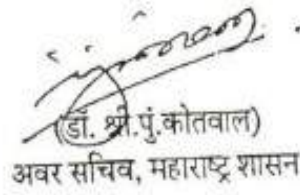 (डॉ. श्री.पुं.कोतवाल)
अवर सचिव, महाराष्ट्र शासन